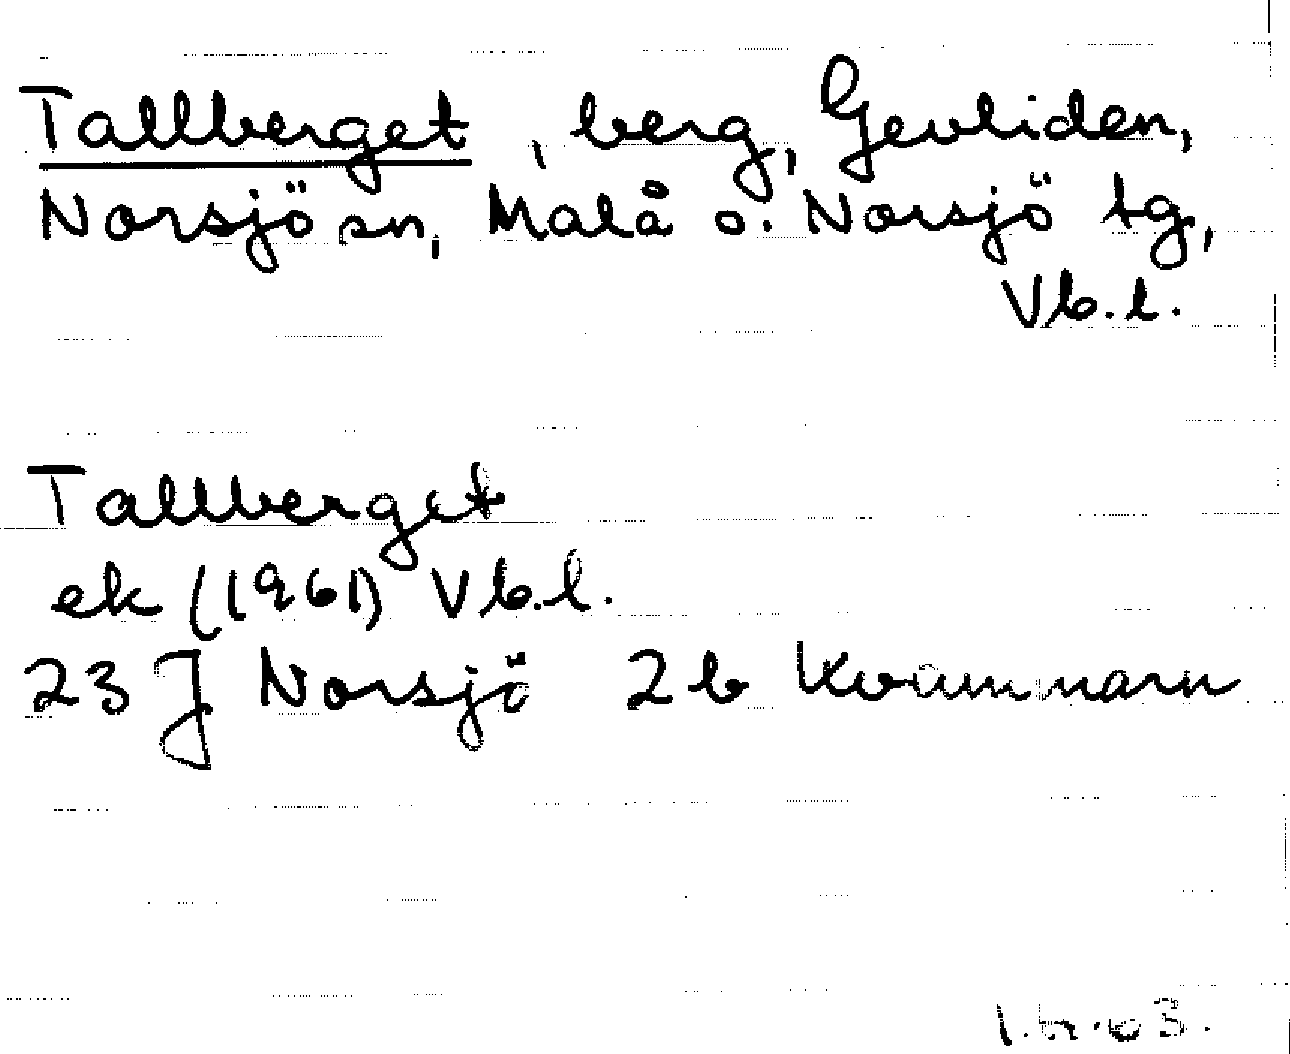 Tallberget, berg, Gevliden,
Norsjö sn, Malå o. Norsjö tg,
Vb.l.
Tallberget
ek (1961) Vb.l.
23 J Norsjö 2b Kvammarn